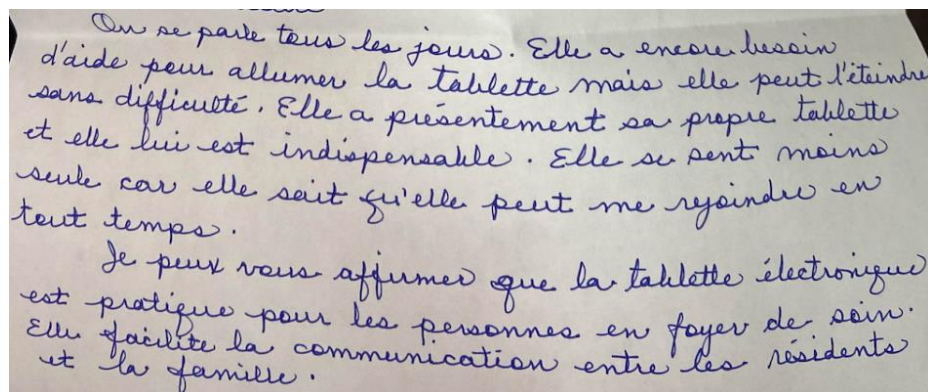 On se parle tous les jours. Elle a encore besoin
d'aide pour allumer la tablette mais elle peut l'éteindre
sans difficulté. Elle a présentement sa propre tablette
et elle lui est indispensable. Elle se sent moins
seule car elle sait qu'elle peut me rejoindre en
tout temps.
Je peux vous affirmer que la tablette électronique
est pratique pour les personnes en foyer de soin.
Elle facilite la communication entre les résidents
et la famille.